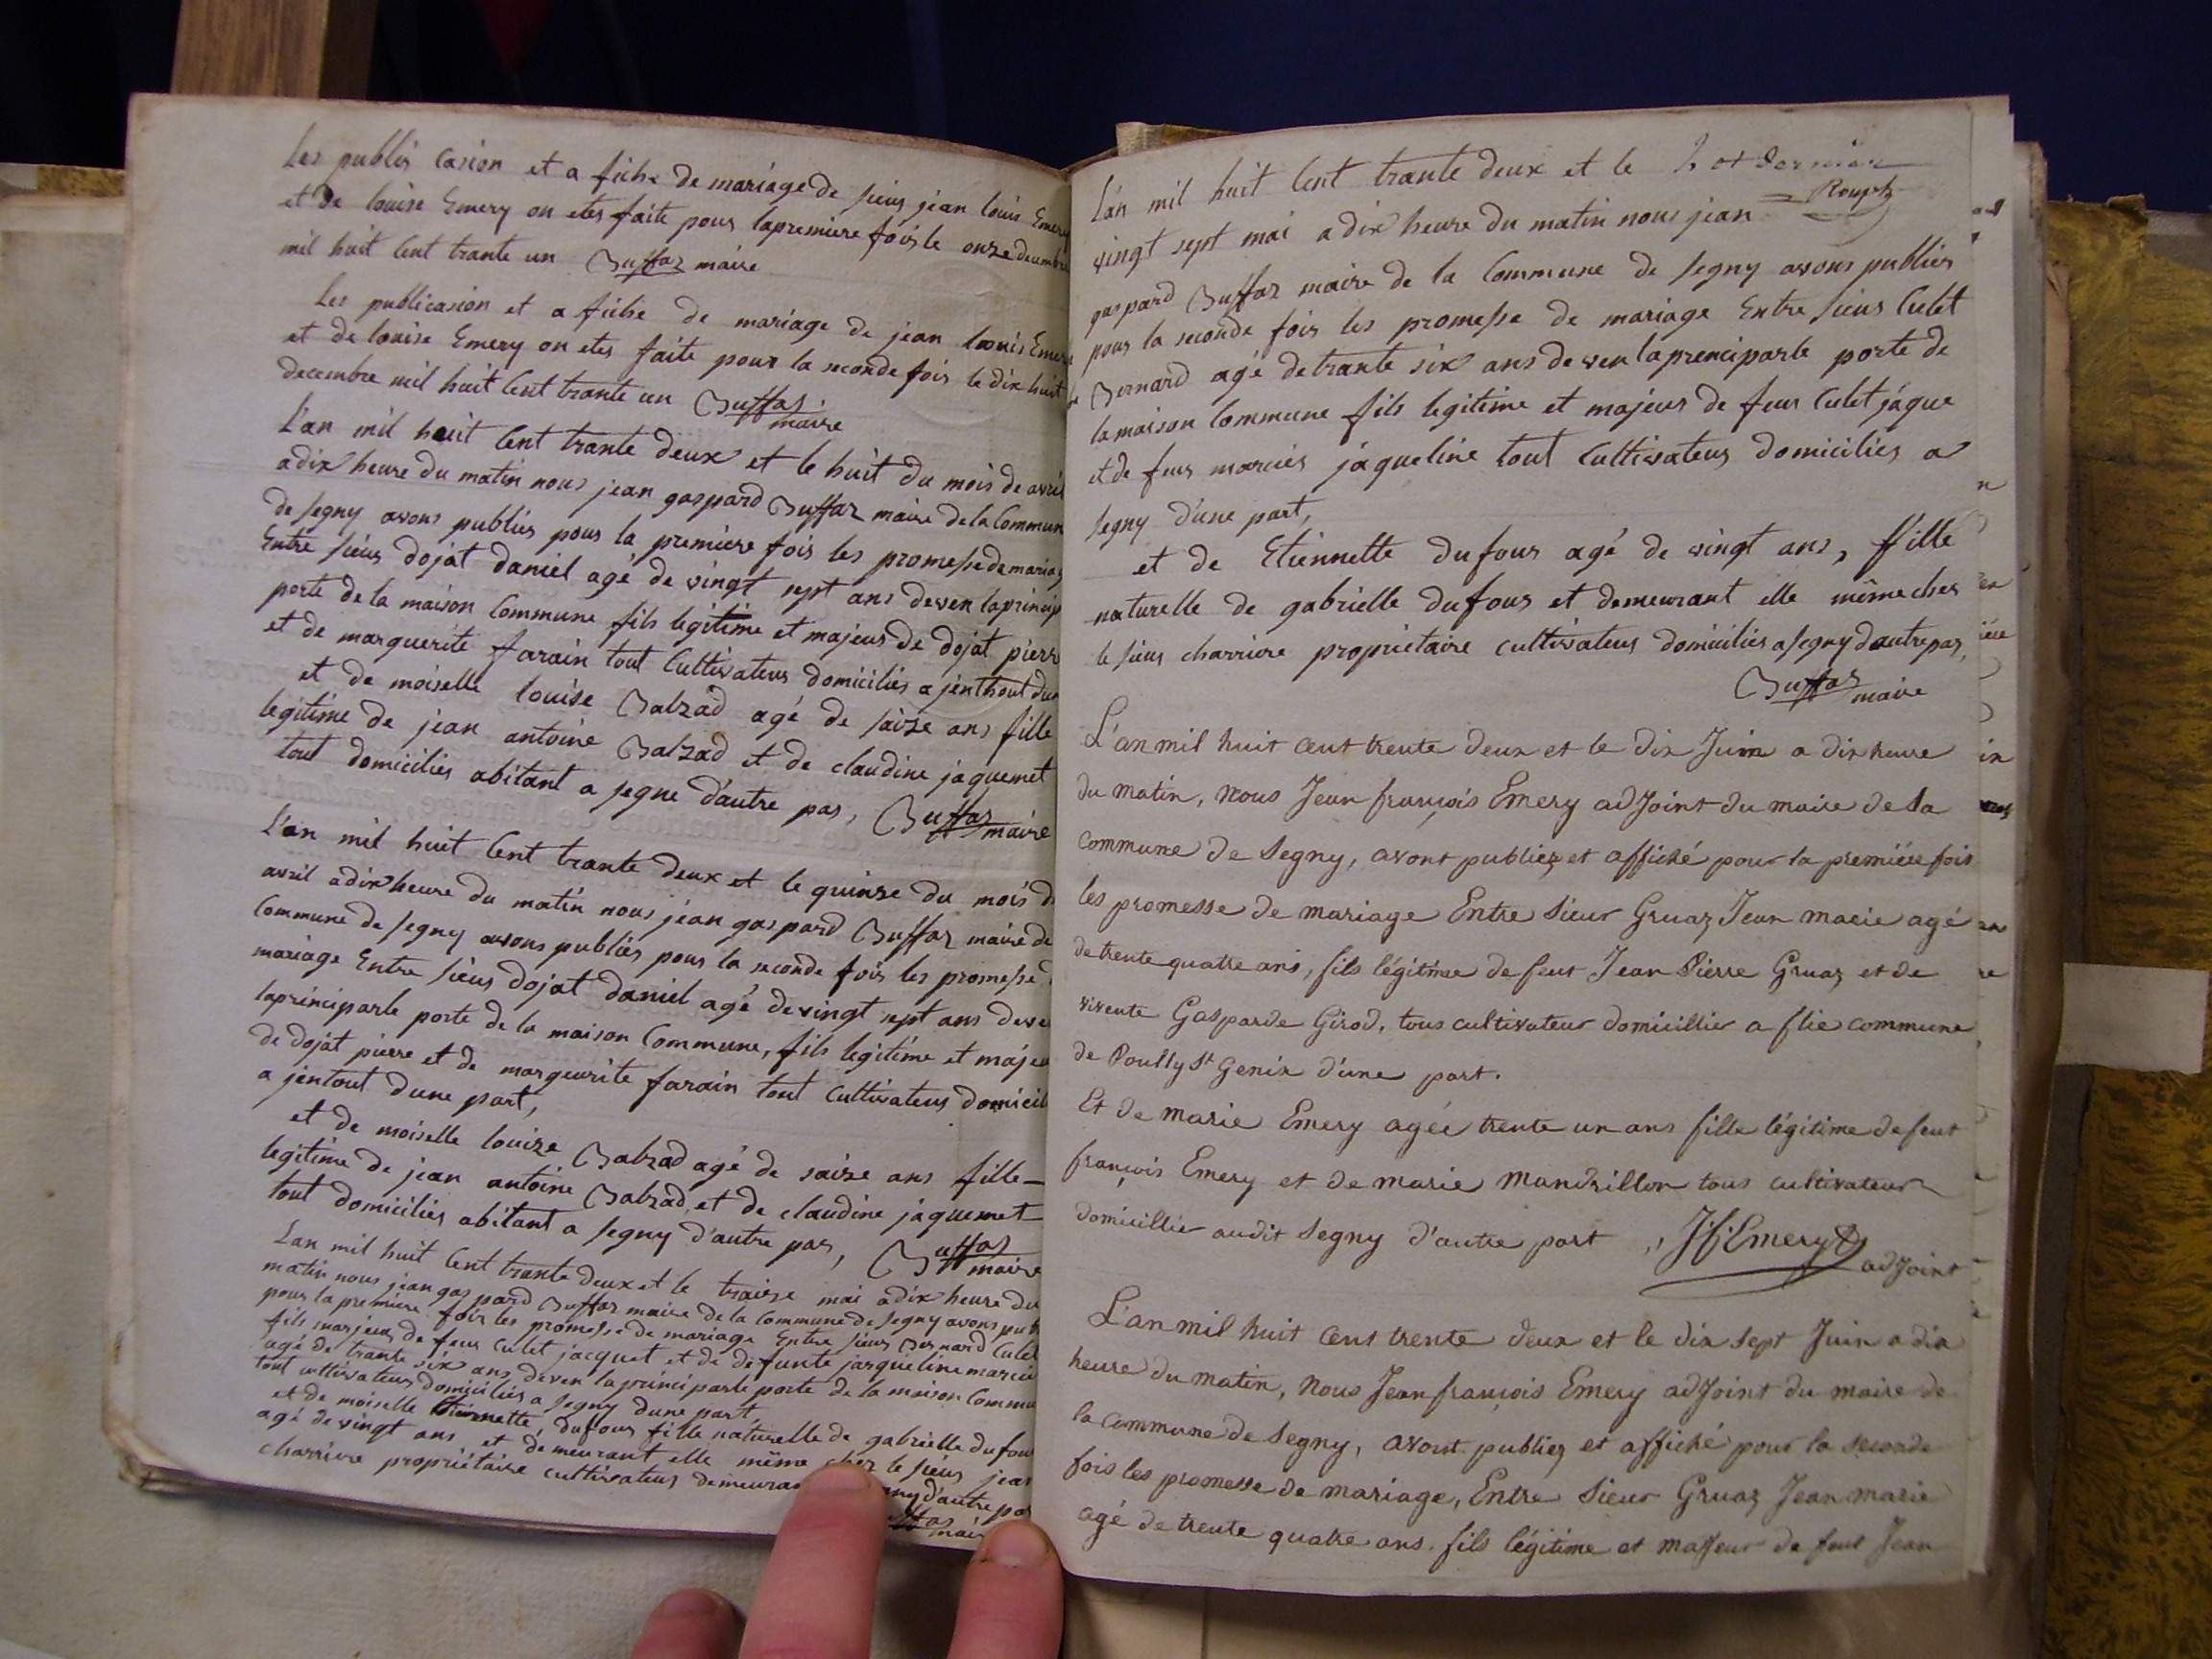 Les publis casion et a fiche de mariage de sieur jean louis Emery
et de louise Emery on etes faite pour lapremiere fois le onze decembre
mil huit Cent trante un Buffaz maire
Les publicasion et a fiche de mariage de jean louis Emery
et de louise Emery on etes faite pour la seconde fois le dix huit
decembre mil huit Cent trante un Buffaz
maire
L'an mil huit Cent trante deux et le huit du mois de avril
adix heure du matin nous jean gaspard Buffaz maire dela Commun
de segny avons publiés pour la premiere fois les promesse de mariag
Entre sieur dojat daniel agé de vingt sept ans deven laprincip
porte de la maison Commune fils legitime et majeur de dojat pierr
et de marguerite farain tout Cultivateur domiciliés a jenthout dun
et de moiselle louise Balzad agé de saize ans fille
legitime de jean antoine Balzad et de claudine jaquemet
tout domiciliés abitant a segne d'autre par, Buffaz
maire
L'an mil huit Cent trante deux et le quinze du mois d
avril adix heure du matin nous jean gaspard Buffaz maire de
Commune de segny avons publiés pour la seconde fois les promesse
mariage Entre sieur dojat daniel agé de vingt sept ans deve
laprinciparle porte de la maison Commune, fils legitime et majeu
de dojat pierre et de margeurite farain tout Cultivateur domicili
a jentout dune part,
et de moiselle louize Balzad agé de saize ans fille
legitime de jean antoine Balzad, et de claudine jaquemet
tout domiciliés abitant a segny d'autre par, Buffaz
maire
Lan mil huit Cent trante deux et le traize mai adix heure du
matin nous jean gaspard Buffaz maire de la Commune de segny avons publ
pour la premiere fois les promesse de mariage Entre sieur Bernard Culet
fils marjeur de feur culet jacquet et de defunte jarqueline marcie
agé de trante six ans deven la principarle porte de la maison Commu
tout cultivateur domiciliés a segny dune part
et de moiselle Etiennette dufour fille naturelle de gabrielle dufour
agé de vingt ans et demeurant elle même chez le sieur jean
charriere propriétaire cultivateur demeuran gny d'autre par
maire
L'an mil huit Cent trante deux et le
vingt sept mai adix heure du matin nous jean
gaspard Buffaz maire de la Commune de segny avons publiés
pour la seconde fois les promesse de mariage Entre sieur Culet
Bernard agé de trante six ans de ven laprenciparle porte de
la maison Commune fils legitime et majeur de feur Culet jáque
et de feur marciér jáqueline tout Cultivateur domiciliés a
segny d'une part,
et de Etiennette dufour agé de vingt ans, fille
naturelle de gabrielle dufour et demeurant elle même chez
le sieur charriere proprietaire cultivateur domiciliés a segny dautre par,
Buffaz
maire
L'an mil huit cent trente deux et le dix Juin a dix heure
du matin, Nous Jean françois Emery adjoint du maire de la
commune de Segny, avont publiez et affiché pour la premiére fois
les promesse de mariage Entre Sieur Gruaz Jean marie agé
de trente quatre ans, fils légitime de feut Jean Pierre Gruaz et de
vivente Gasparde Girod, tous cultivateur domicillier a flie commune
de Poully St Genix d'une part.
Et de marie Emery agée trente un ans fille légitime de feut
françois Emery et de marie Mandrillon tous cultivateur
domicillier audit Segny d'autre part J.f. Emery
adjoint
L'an mil huit cent trente deux et le dix sept Juin a dix
heure du matin, Nous Jean françois Emery adjoint du maire de
la commune de Segny, avont publiez et affiché pour la seconde
fois les promesse de mariage, Entre Sieur Gruaz Jean marie
agé de trente quatre ans. fils légitime et majeur de feut Jean